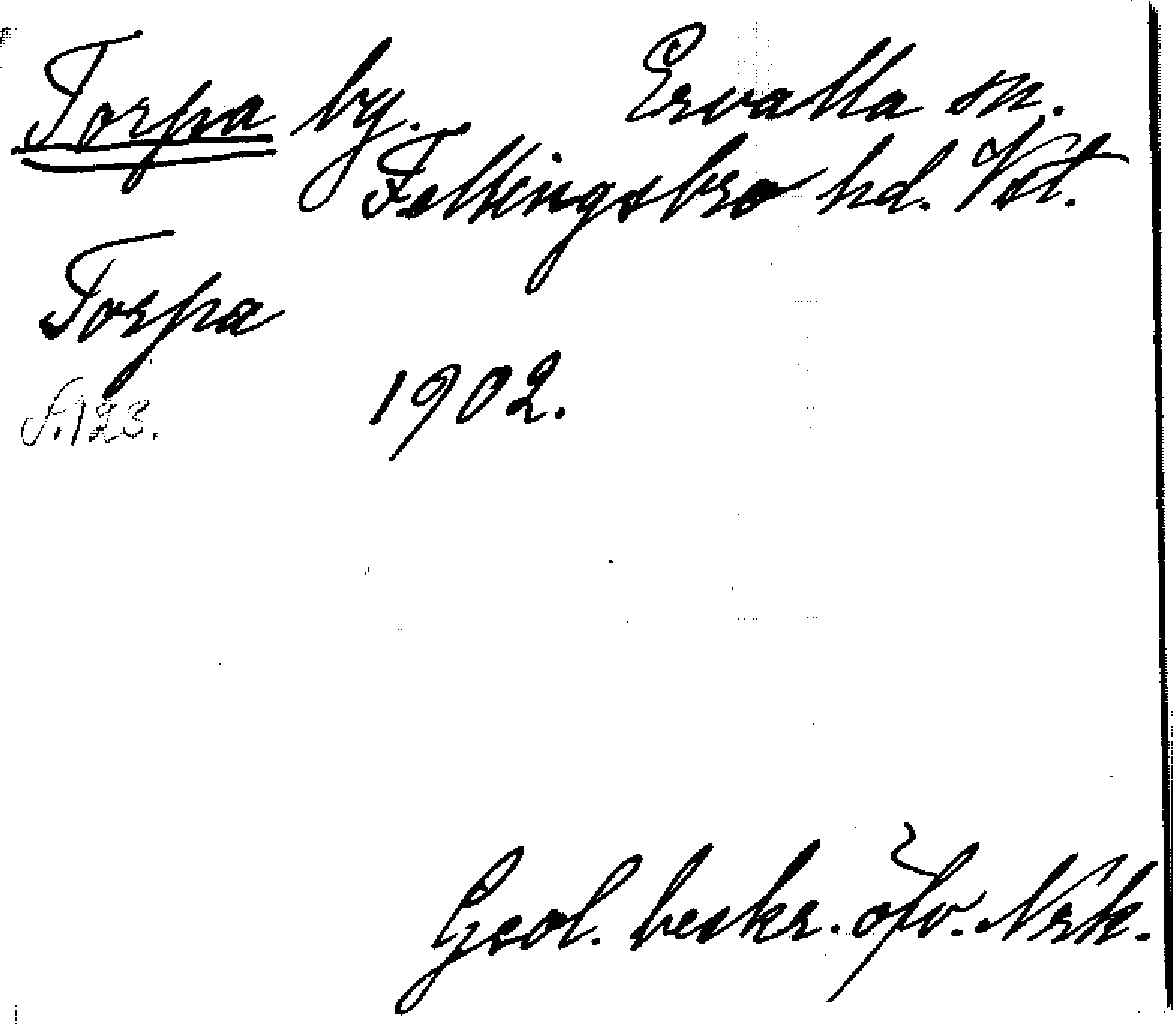 Torpa by. Ervalla sn.
Fellingsbro hd. Vstl.
Torpa
S. 123. 1902.
Geol. beskr. öfv. Nrk.